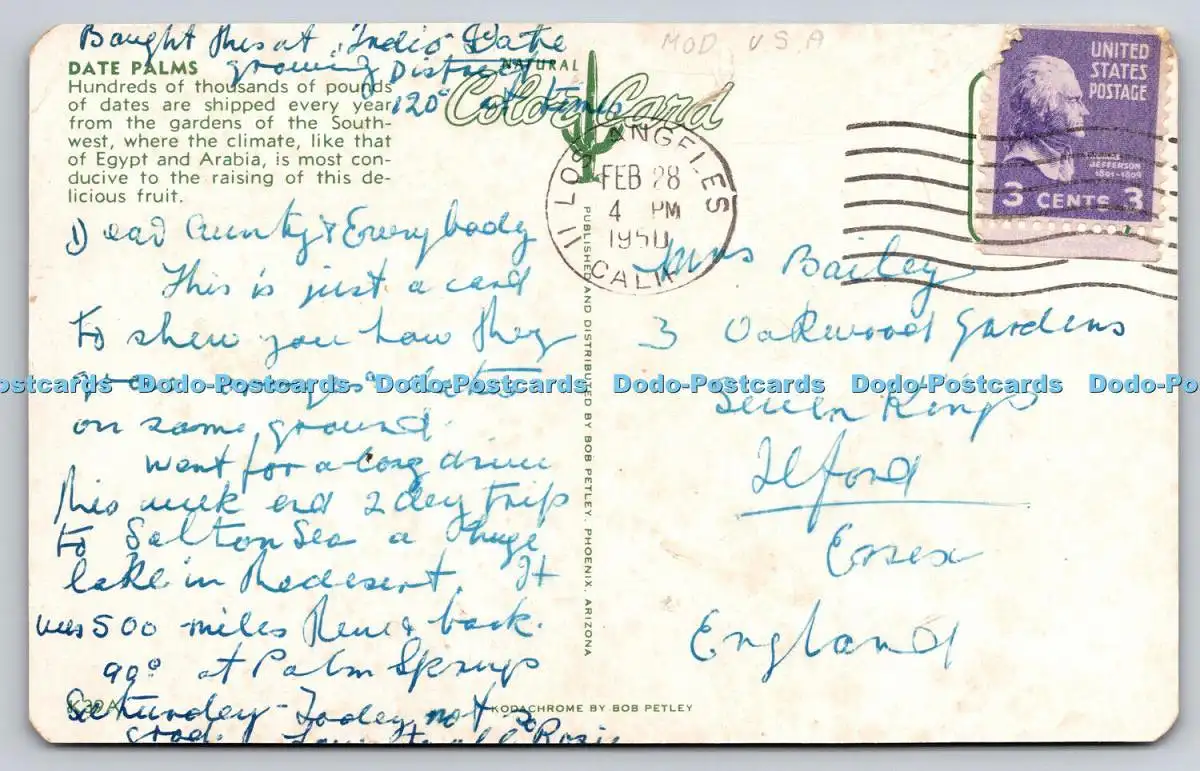 Bought this at "Indio" Date
growing District
120° at times
MOD USA
DATE PALMS
Hundreds of thousands of pounds
of dates are shipped every year
from the gardens of the South-
west, where the climate, like that
of Egypt and Arabia, is most con-
ducive to the raising of this de-
licious fruit.
NATURAL
Color Card
Dear Aunty & Everybody
This is just a card
to show you how they
grow oranges & dates
on same ground.
Went for a long drive
this week end 2 day trip
to Salton Sea a huge
lake in the desert. It
was 500 miles there & back.
99° at Palm Springs
Saturday - Today not so
good. Love to all Rosie
K32A
KODACHROME BY BOB PETLEY
PUBLISHED AND DISTRIBUTED BY BOB PETLEY, PHOENIX, ARIZONA
LOS ANGELES
FEB 28
4 PM
1950
CALIF
11
UNITED
STATES
POSTAGE
JEFFERSON
1801-1809
3 CENTS 3
Mrs Bailey
3 Oakwood Gardens
Seven Kings
Ilford
Essex
England
Dodo-Postcards Dodo-Postcards Dodo-Postcards Dodo-Postcards